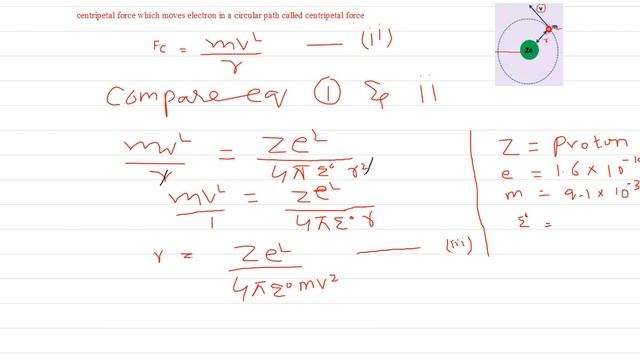 centripetal force which moves electron in a circular path called centripetal force
Fc = mv²/r —— (ii)
Compare eq ① & ii
mv²/r = Ze²/4πε° r²
mv²/1 = Ze²/4πε° r
r = Ze²/4πε° mv² —— (iii)
Z = Proton
e = 1.6 × 10⁻¹
m = 9.1 × 10⁻³
ε° =
v
r
Ze